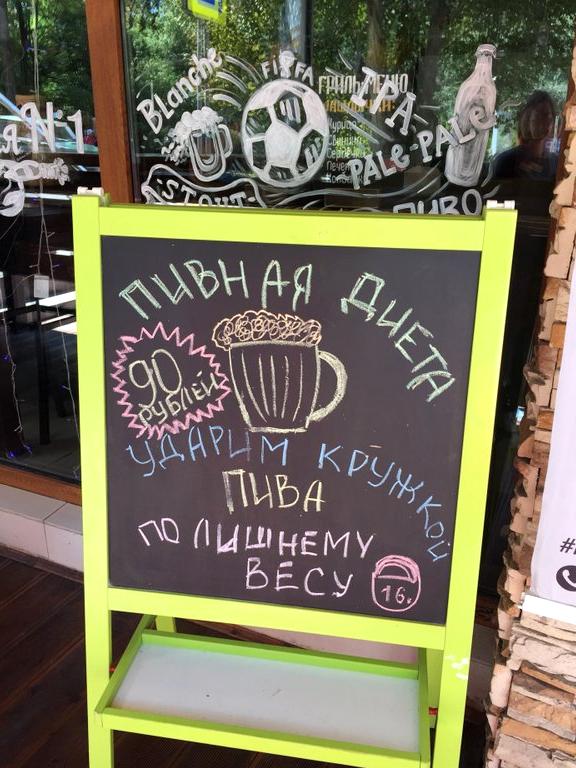 Я №1
Blanche
FIFA
ГРИЛЬ МЕНЮ
Курица
Свинина
PALE-PALE
STOUT
ПИВО
ПИВНАЯ ДИЕТА
90
РУБЛЕЙ
УДАРИМ КРУЖКОЙ
ПИВА
ПО ЛИШНЕМУ
ВЕСУ
16.
#